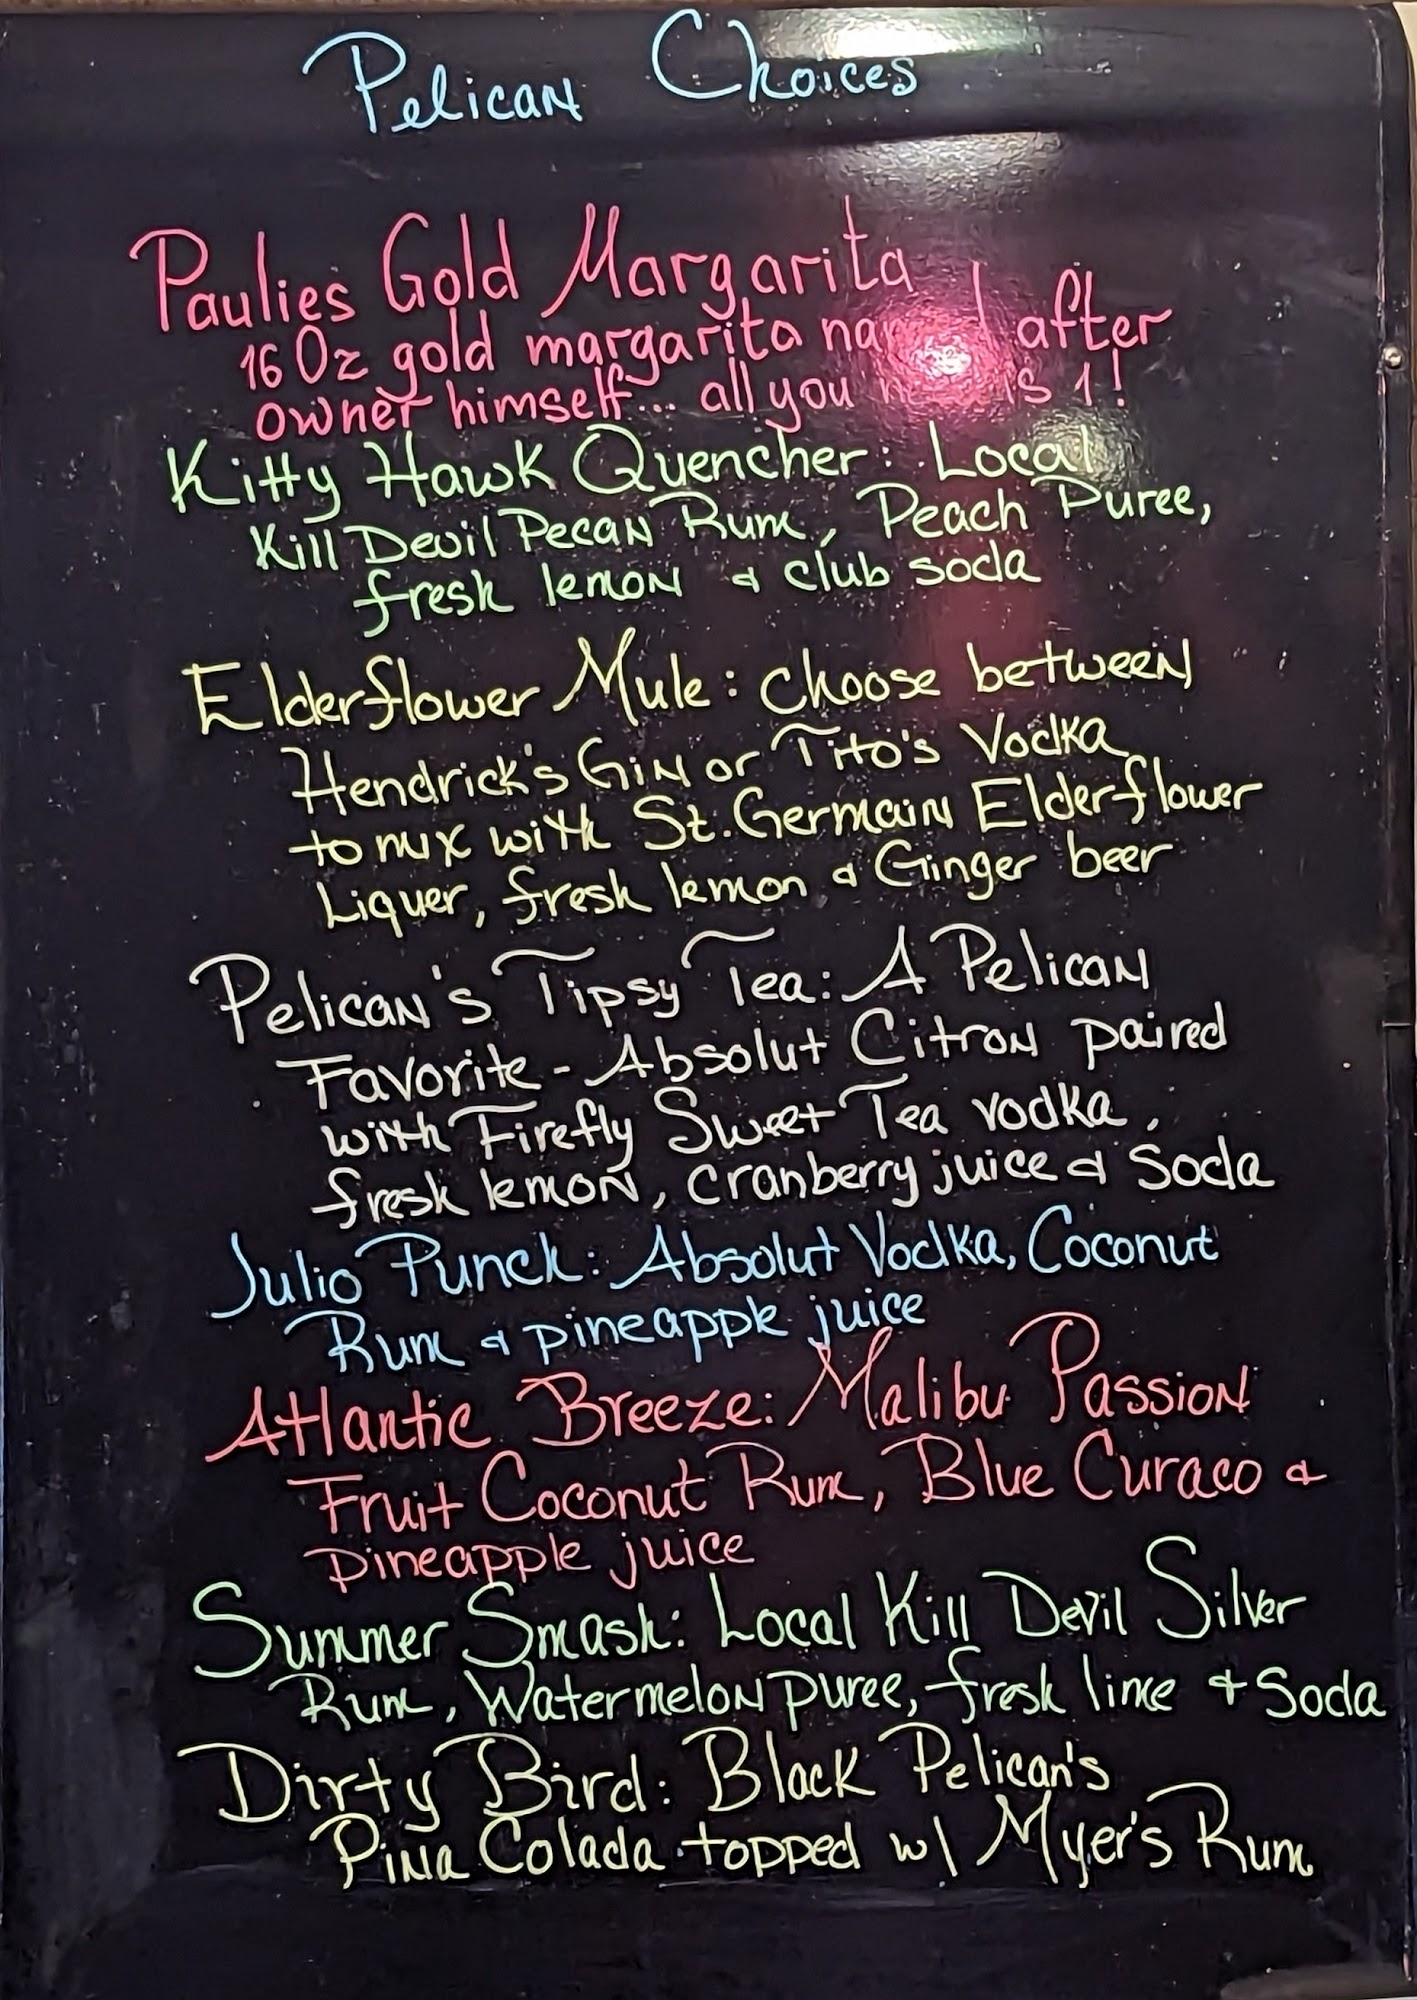 Pelican Choices
Paulies Gold Margarita
16 Oz gold margarita named after
owner himself... all you need is 1!
Kitty Hawk Quencher: Local
Kill Devil Pecan Rum, Peach Puree,
fresh lemon & club soda
Elderflower Mule: Choose between
Hendrick's Gin or Tito's Vodka
to mix with St. Germain Elderflower
Liquer, fresh lemon & Ginger beer
Pelican's Tipsy Tea: A Pelican
Favorite - Absolut Citron paired
with Firefly Sweet Tea vodka,
fresh lemon, cranberry juice & soda
Julio Punch: Absolut Vodka, Coconut
Rum & pineapple juice
Atlantic Breeze: Malibu Passion
Fruit Coconut Rum, Blue Curaco &
pineapple juice
Summer Smash: Local Kill Devil Silver
Rum, Watermelon puree, fresh lime & Soda
Dirty Bird: Black Pelican's
Pina Colada topped w/ Myer's Rum